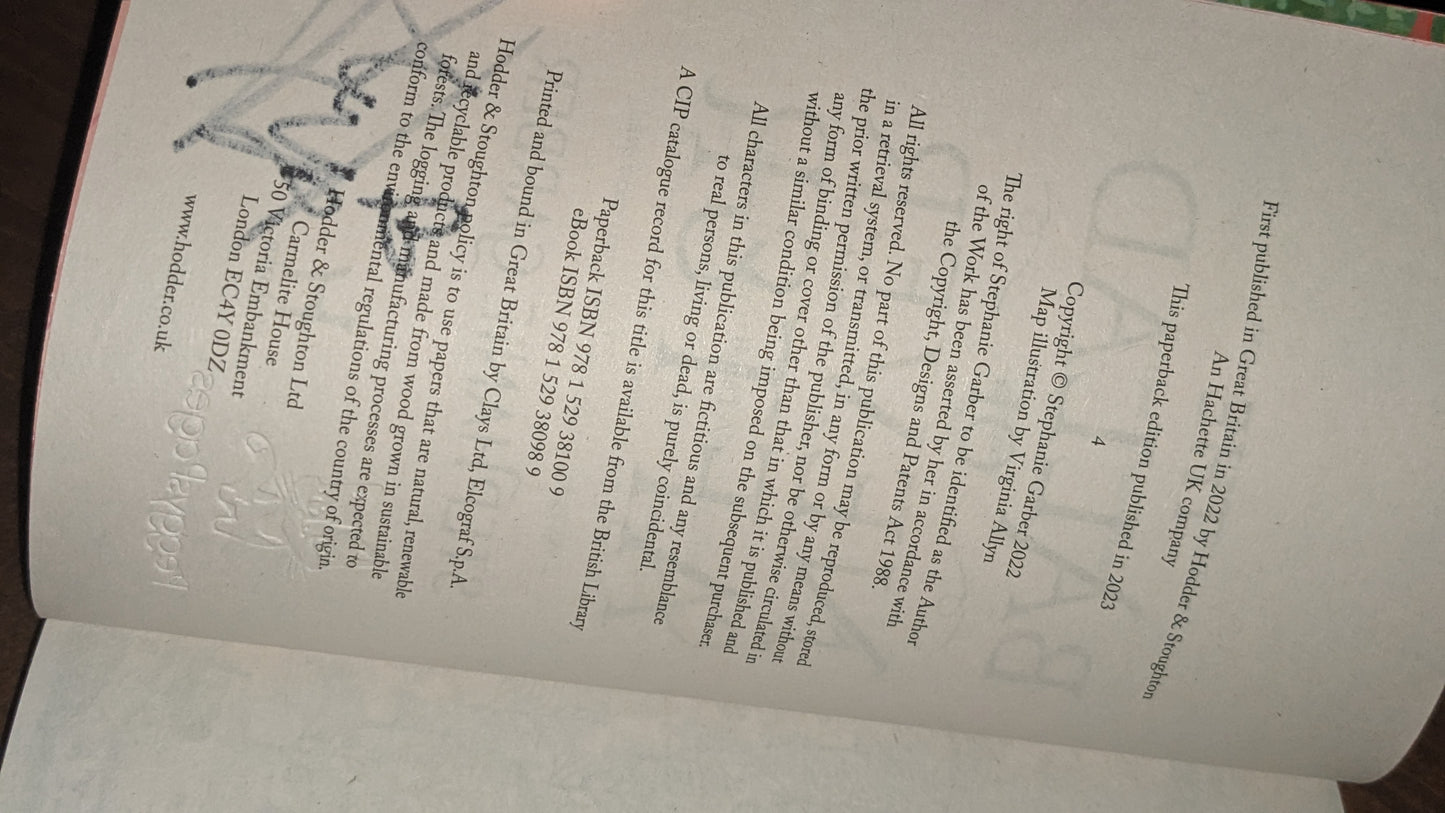 First published in Great Britain in 2022 by Hodder & Stoughton
An Hachette UK company
This paperback edition published in 2023
4
Copyright © Stephanie Garber 2022
Map illustration by Virginia Allyn
The right of Stephanie Garber to be identified as the Author
of the Work has been asserted by her in accordance with
the Copyright, Designs and Patents Act 1988.
All rights reserved. No part of this publication may be reproduced, stored
in a retrieval system, or transmitted, in any form or by any means without
the prior written permission of the publisher, nor be otherwise circulated in
any form of binding or cover other than that in which it is published and
without a similar condition being imposed on the subsequent purchaser.
All characters in this publication are fictitious and any resemblance
to real persons, living or dead, is purely coincidental.
A CIP catalogue record for this title is available from the British Library
Paperback ISBN 978 1 529 38100 9
eBook ISBN 978 1 529 38098 9
Printed and bound in Great Britain by Clays Ltd, Elcograf S.p.A.
Hodder & Stoughton policy is to use papers that are natural, renewable
and recyclable products and made from wood grown in sustainable
forests. The logging and manufacturing processes are expected to
conform to the environmental regulations of the country of origin.
Hodder & Stoughton Ltd
Carmelite House
50 Victoria Embankment
London EC4Y 0DZ
www.hodder.co.uk